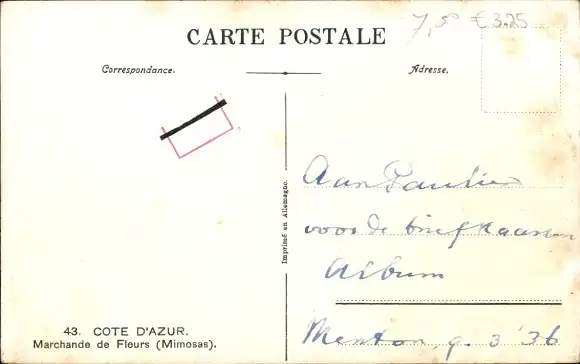 7,5 € 3.25
CARTE POSTALE
Correspondance.
Adresse.
Aan
voor de briefkaarten
Album
Menton, 9. 3 '36
Imprimé en Allemagne.
43. COTE D'AZUR.
Marchande de Fleurs (Mimosas).